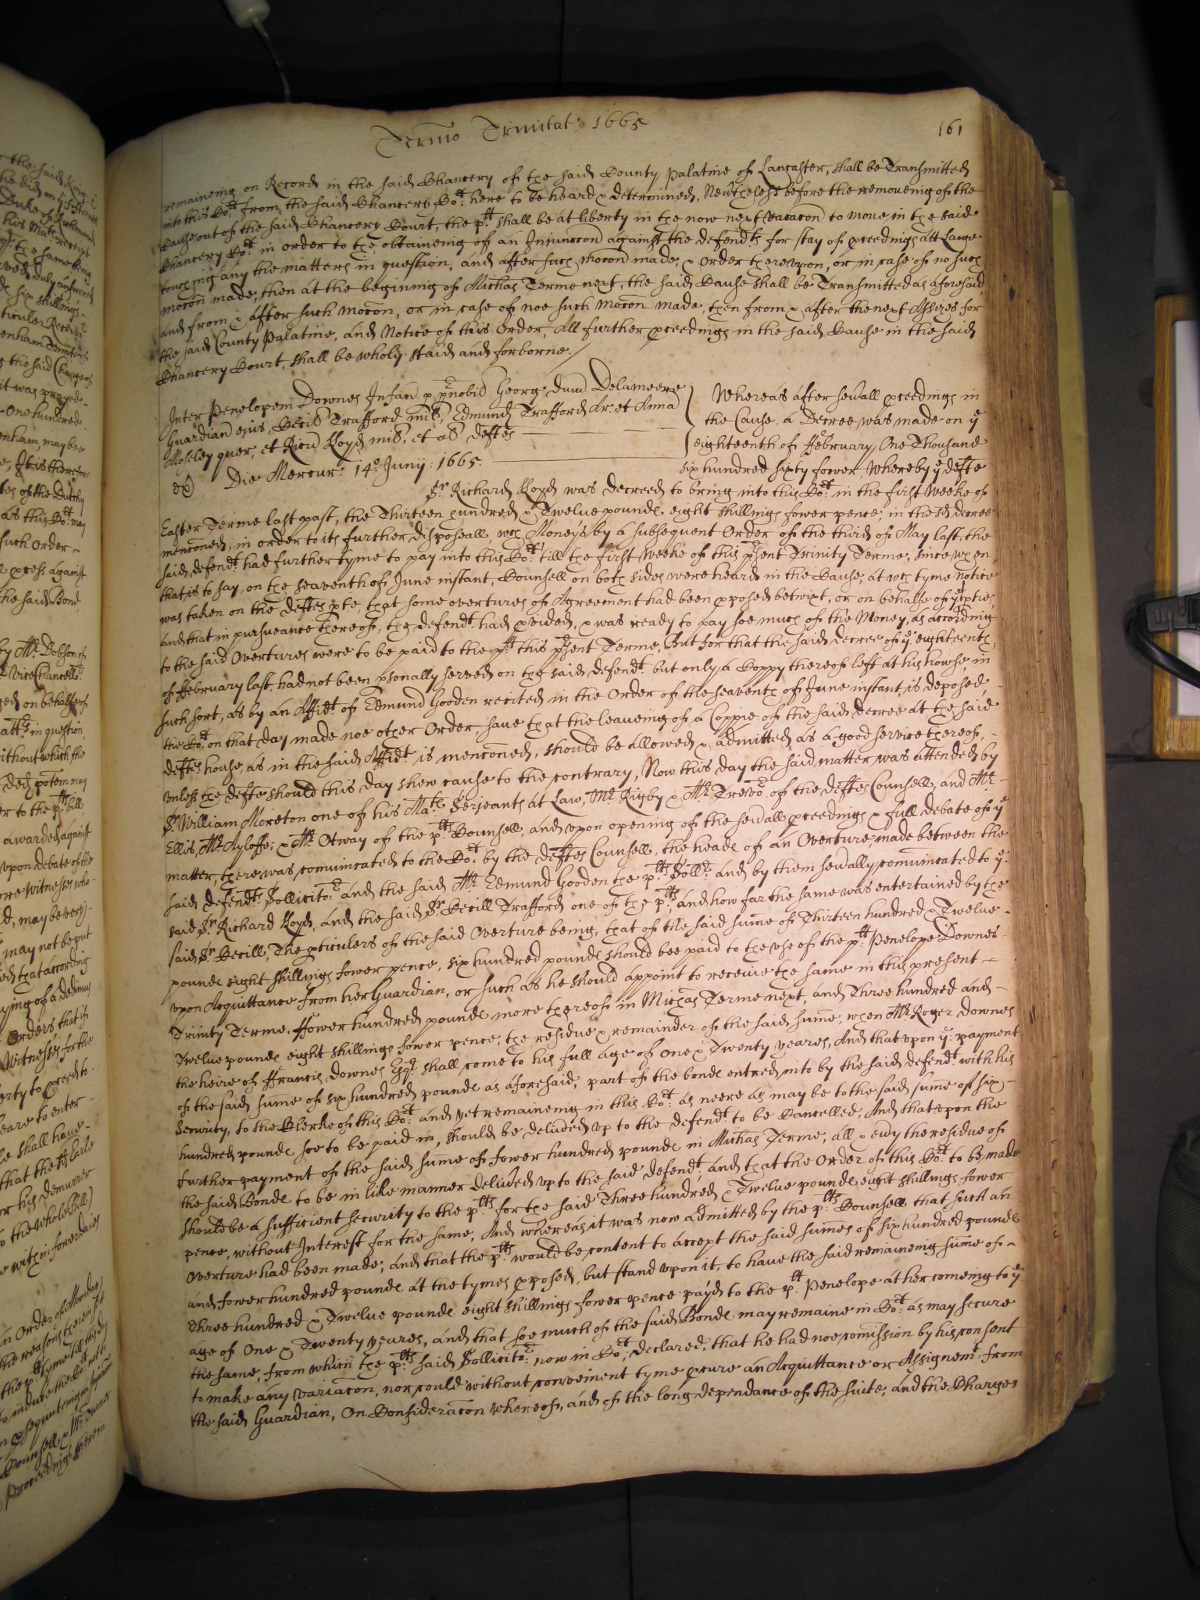 Termo Trinitat: 1665
161
remaineing on Record in the said Chancery of the said County Palatine of Lancaster, shall be Transmitted
into this Cot. from the said Chancery Cot. here to be heard & determined, Neverthelesse before the removeing of the
Cause out of the said Chancery Court, the ptt shall be at liberty in the now next vacacon to move in the said
Chancery Cot. in order to the obtaineing of an Injunccon against the defendts for stay of pceedings att Lawe
touching any the matters in question, and after such mocon made, & order thereupon, or in case of no such
mocon made, then at the begining of Michas Terme next, the said Cause shall be Transmitted as aforesaid
and from & after such mocon, or in case of noe such mocon made, then from & after the next Assizes for
the said County Palatine, and Notice of this Order, All further pceedings in the said Cause in the said
Chancery Court, shall be wholy staid and forborne /
Inter Penelopem Downes Infan p pnobil Georg: Dnum Delamere
Guardian ejus, Cecil Trafford mil, Edmund Trafford Ar: et Anna
Moseley quer, et Ricu Lloyd mil, et al defts
Die Mercur: 14o Junij: 1665.
Whereas after sevall pceedings in
the Cause, a Decree was made on ye
eighteenth of February, One Thousand
six hundred sixty fower Whereby ye defte
Sr Richard Lloyd was decreed to bring into this Cot. in the first weeke of
Easter Terme last past, the Thirteen hundred & Twelve pounds eight shillings fower pence, in the sd decree
menconed, in order to its further disposeall, wch Moneys by a subsequent Order of the third of May last, the
said defendt. had further tyme to pay into this Cot. till the first weeke of this psent Trinity Terme, since when
that is to say, on the seaventh of June instant, Counsell on both sides were heard in the Cause, at wch tyme notice
was taken on the defts pte, that some overtures of Agreement had been pposed betwixt, or on behalfe of ye pties
and that in pursueance thereof, the defendt had pvided, & was ready to pay soe much of the Money, as according
to the said Overtures were to be paid to the ptt this psent Terme, But for that the said decree of ye eighteenth
of February last, had not been psonally served on the said defendt but only a Coppy thereof left at his howse, in
such sort, as by an Affidt of Edmund Gooden recited in the Order of the seaventh of June instant, is deposed,
the Cot. on that day made noe other Order save that the leaveing of a Coppie of the said decree at the said
defts house, as in the said Affidt is menconed, should be allowed & admitted as a good service thereof,
unless the defts should this day shew cause to the contrary, Now this day the said matter was attended by
Sr William Moreton one of his Maties Serjeants at Law, Mr Rigby & Mr Trevor of the defts Counsell, and Mr
Ellis, Mr Ayloffe, & Mr Otway of the ptts Counsell, and upon opening of the sevall pceedings & full debate of ye
matter, there was comunicated to the Cot. by the defts Counsell, the heads of an Overture, made between the
said defendts Sollicitor and the said Mr Edmund Gooden the ptts Sollr and by them sevally comunicated to ye
said Sr Richard Lloyd, and the said Sr Cecill Trafford one of the ptts and how far the same was entertained by the
said Sr Cecill, The pticulers of the said Overture being, that of the said sume of Thirteen hundred & Twelve
pounds eight shillings fower pence, six hundred pounds should bee paid to the use of the ptt Penelope Downes
upon Acquittance from her Guardian, or such as he should appoint to receive the same in this present
Trinity Terme, Fower hundred pounds more thereof in Michas Terme next, and Three hundred and
Twelve pounds eight shillings fower pence, the residue & remainder of the said sume, when Mr Roger Downes
the heire of Francis Downes Esqr. shall come to his full age of One & Twenty yeares, And that upon ye payment
of the said sume of six hundred pounds as aforesaid, part of the bonds entred into by the said defendt with his
security, to the Clerke of this Cot. and yet remaineing in this Cot. as neere as may be to the said sume of six
hundred pounds soe to be paid in, should be delivered up to the defendt to be Cancelled, And that upon the
further payment of the said sume of fower hundred pounds in Michas Terme, all & evy the residue of
the said Bonds to be in like manner delived up to the said defendt and that the Order of this Cot. to be made
should be a sufficient security to the ptts for the said Three hundred & Twelve pounds eight shillings fower
pence, without Interest for the same, And whereas it was now admitted by the ptts Counsell that such an
Overture had been made; and that the ptts would be content to accept the said sumes of six hundred pounds
and fower hundred pounds at the tymes pposed, but stand upon it, to have the said remaineing sume of
Three hundred & Twelve pounds eight shillings fower pence payd to the ptt Penelope at her comeing to ye
age of One & Twenty yeares, and that soe much of the said Bonds may remaine in Cot. as may secure
the same, from which the ptts said Sollicitor now in Cot. declared, that he had noe comission by his consent
to make any variacon, nor could without convenient tyme pcure an Acquittance or Assignemt. from
the said Guardian, On Consideracon whereof, and of the long dependance of the suite, and the Charges